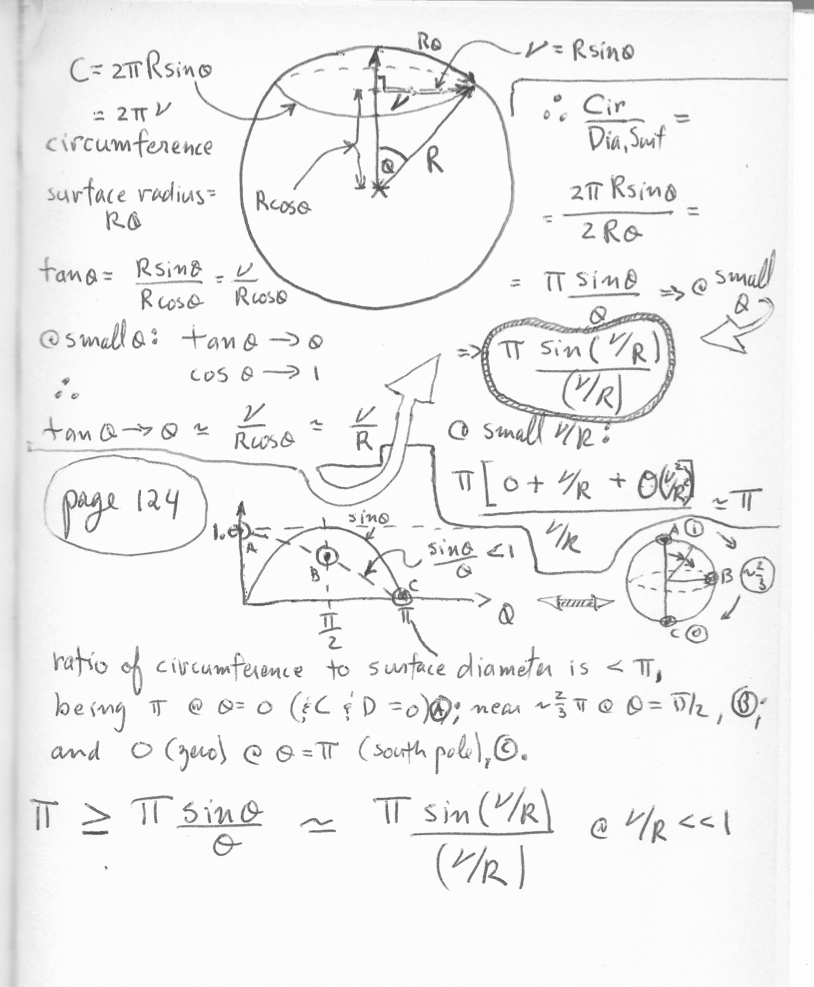 C = 2π R sin θ
= 2π r
circumference
surface radius =
Rθ
Rθ
r = R sin θ
r
θ
R
R cos θ
∴ Cir / Dia, Surf =
= 2π R sin θ / 2 R θ =
= π sin θ / θ ⇒ @ small θ
⇒ π sin (r/R) / (r/R)
tan θ = R sin θ / R cos θ = r / R cos θ
@ small θ: tan θ → θ
cos θ → 1
∴
tan θ → θ ≃ r / R cos θ ≃ r / R
@ small r/R:
π [0 + r/R + O(r²/R²)] / r/R ≃ π
page 124
1.0
A
sin θ
B
sin θ / θ < 1
C
π/2
π
θ
A ①
B ~2/3
C ⓪
ratio of circumference to surface diameter is < π,
being π @ θ = 0 (& C & D = 0) Ⓐ; near ~2/3 π @ θ = π/2, Ⓑ;
and 0 (zero) @ θ = π (south pole), Ⓒ.
π ≥ π sin θ / θ ≃ π sin (r/R) / (r/R) @ r/R << 1